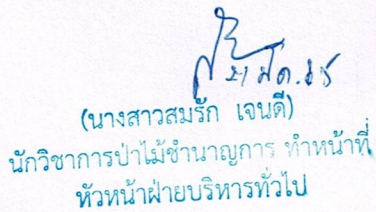 (นางสาวสมรัก เจนดี)
นักวิชาการป่าไม้ชำนาญการ ทำหน้าที่
หัวหน้าฝ่ายบริหารทั่วไป